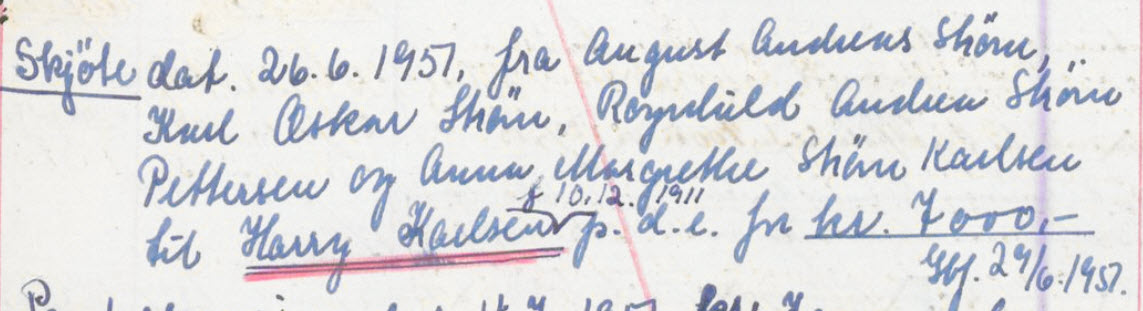 Skjöte dat. 26.6.1951, fra August Andreas Ström,
Karl Oskar Ström, Ragnhild Andrea Ström
Pettersen og Anna Margrethe Ström Karlsen
f 10.12.1911
til Harry Karlsen p. d.e. for kr. 7000,-
Tgl. 29/6.1951.